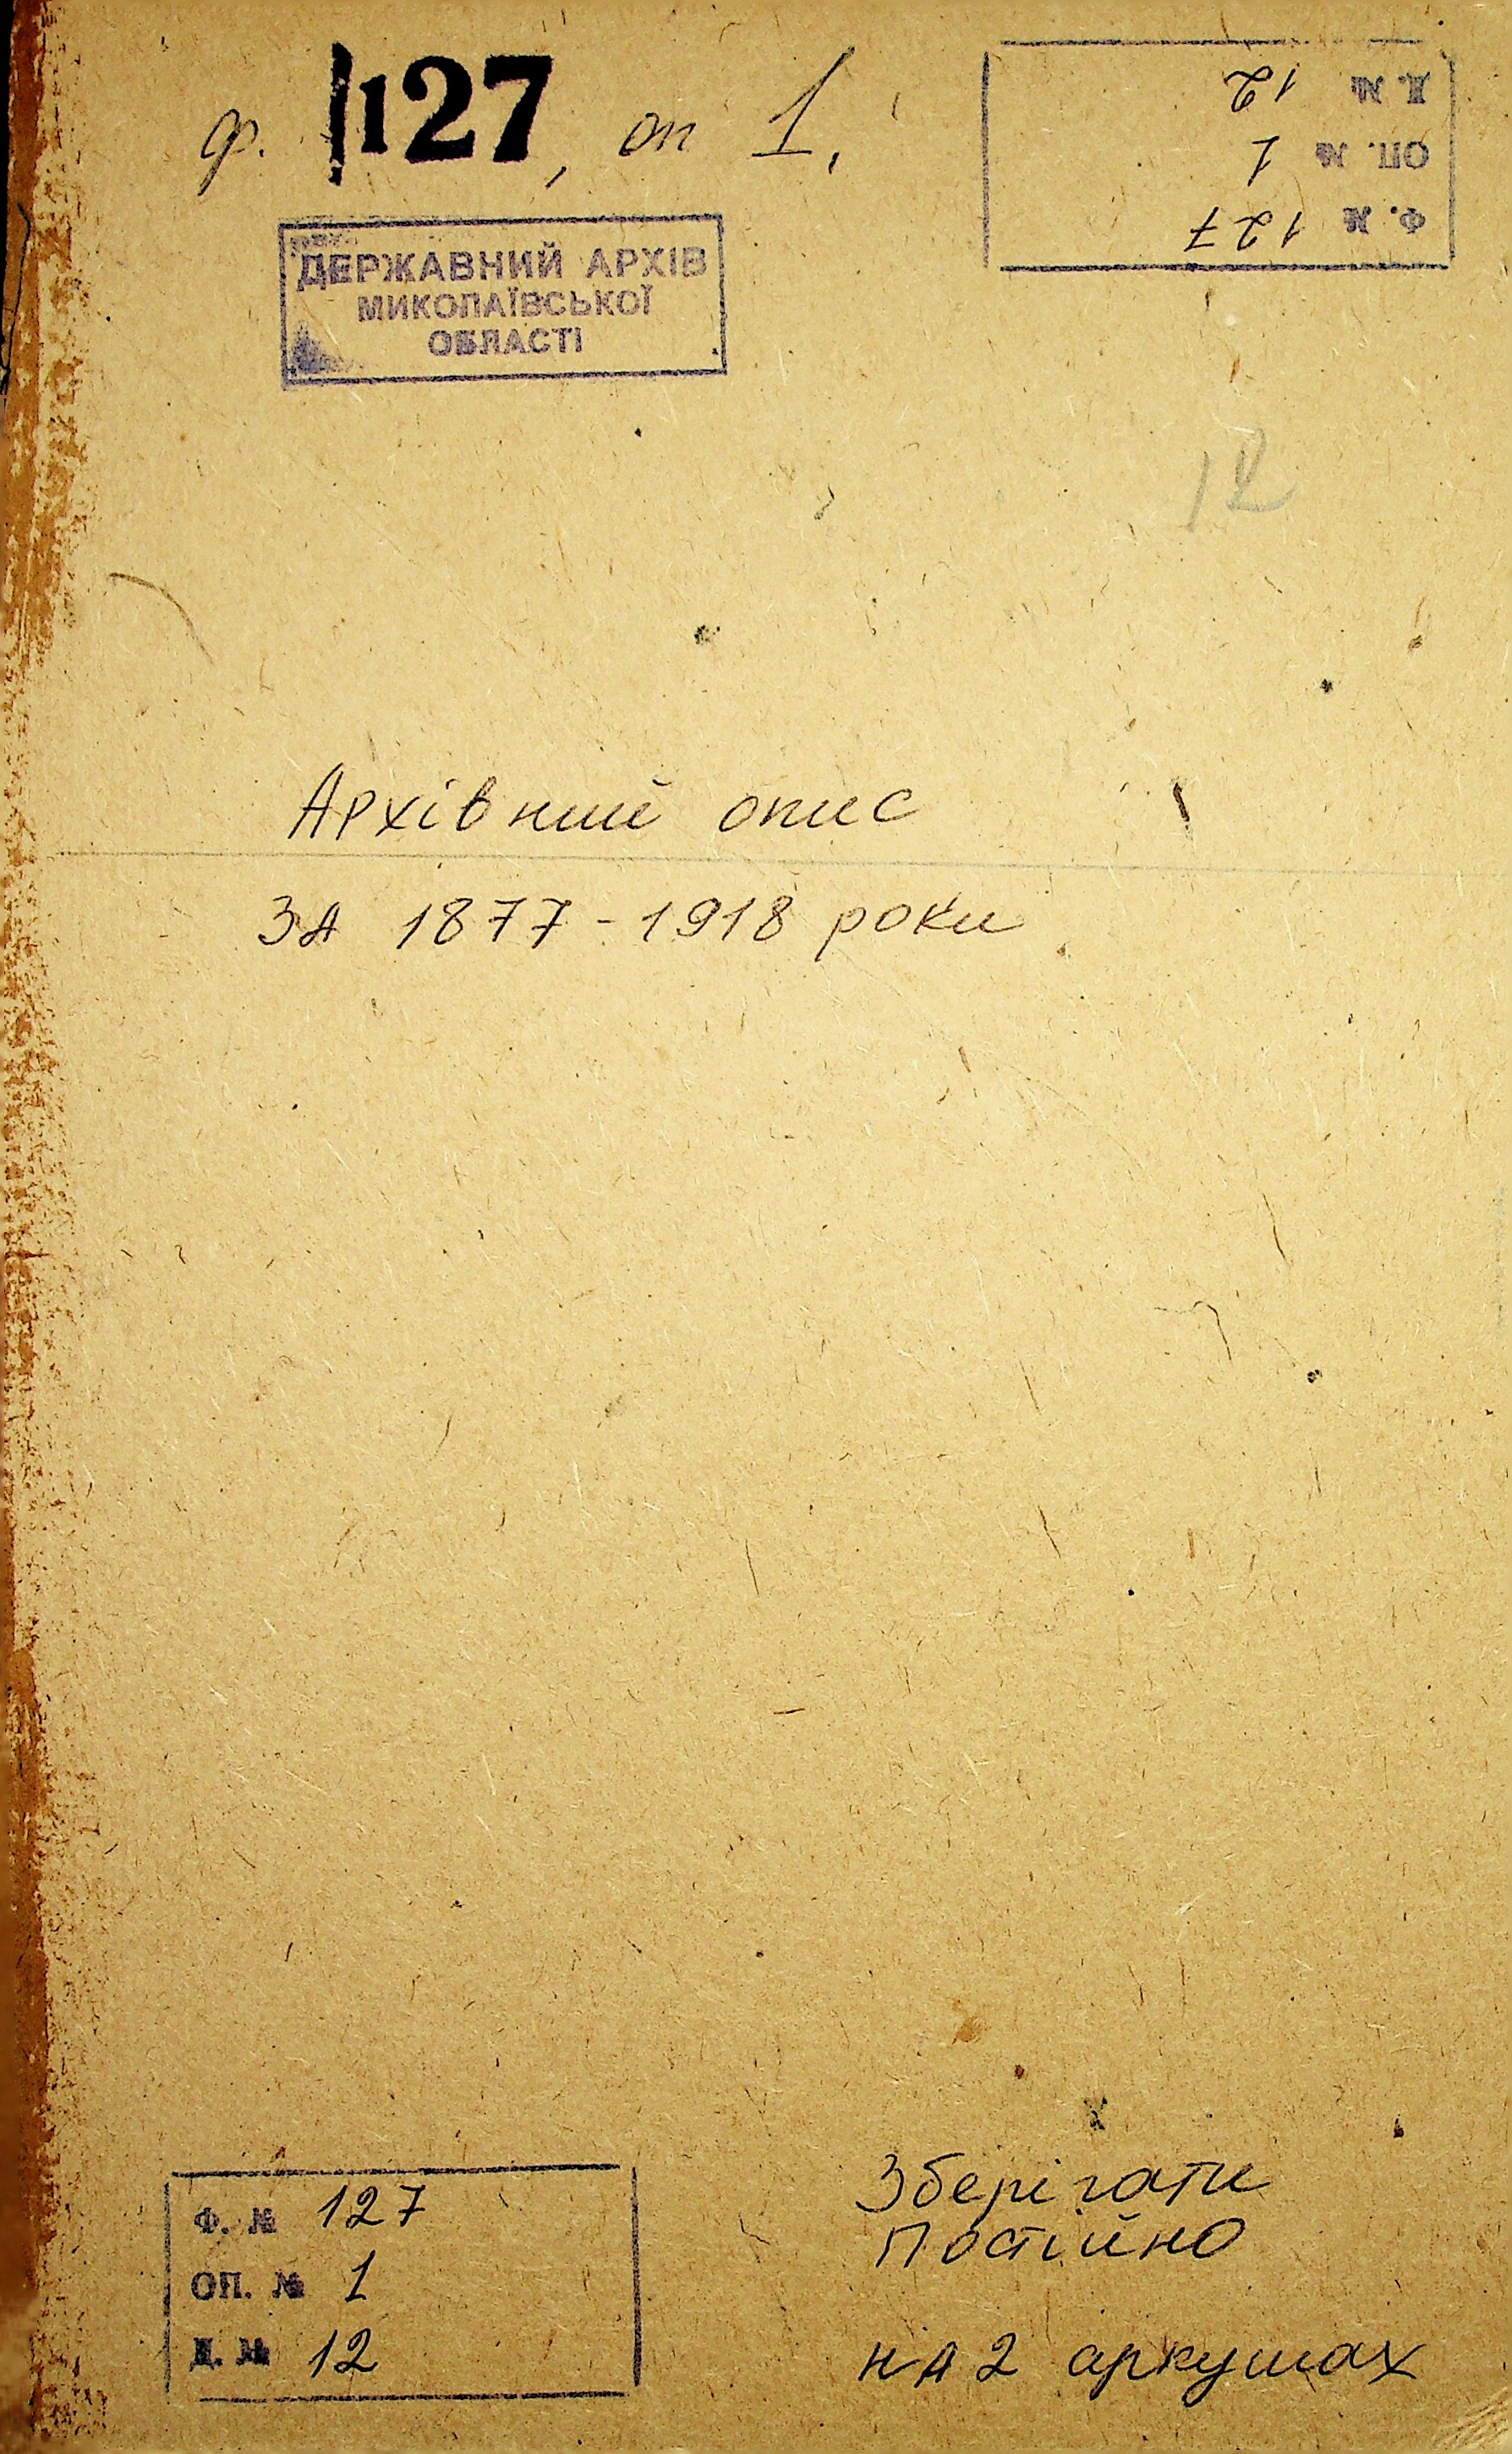 ф. 127, оп 1.
Д. № 12
ОП. № 1
Ф. № 127
ДЕРЖАВНИЙ АРХІВ
МИКОЛАЇВСЬКОЇ
ОБЛАСТІ
12
Архівний опис
за 1877-1918 роки
Ф. № 127
ОП. № 1
Д. № 12
Зберігати
постійно
на 2 аркушах